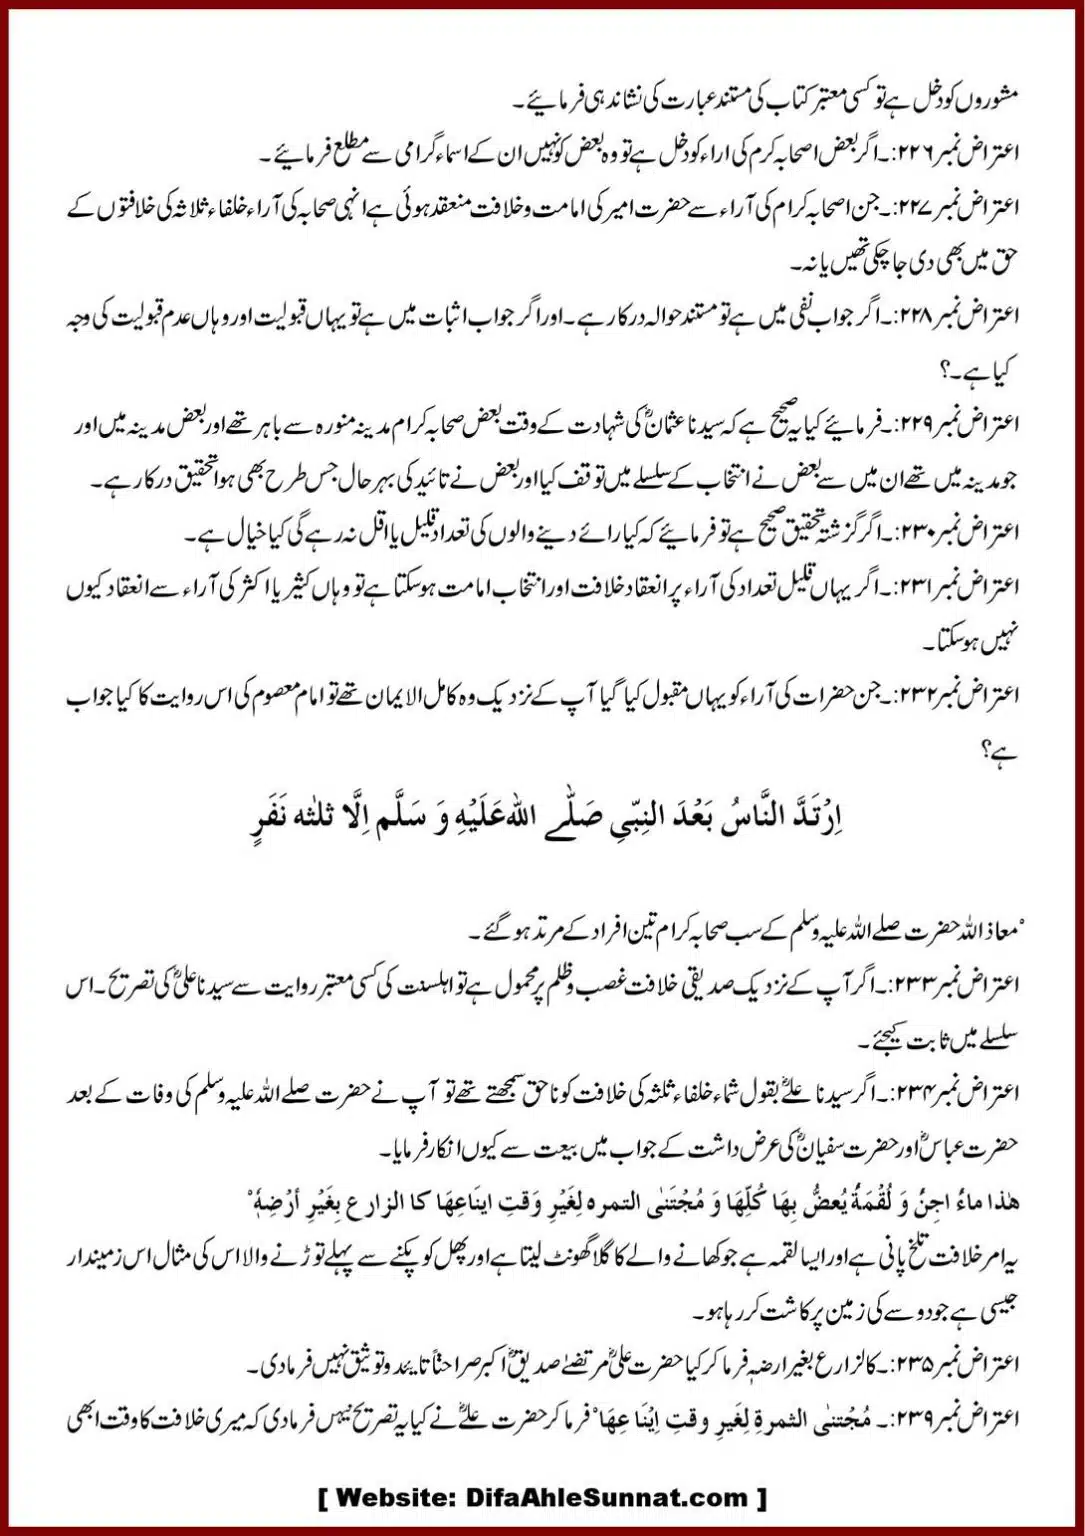 مشوروں کو دخل ہے تو کسی معتبر کتاب کی مستند عبارت کی نشاندہی فرمائیے۔
اعتراض نمبر ۲۲۶:۔ اگر بعض اصحابہ کرم کی اراء کو دخل ہے تو وہ بعض کو نہیں ان کے اسماء گرامی سے مطلع فرمائیے۔
اعتراض نمبر ۲۲۷:۔ جن اصحابہ کرام کی آراء سے حضرت امیر کی امامت و خلافت منعقد ہوئی ہے انہی صحابہ کی آراء خلفاء ثلاثہ کی خلافتوں کے
حق میں بھی دی جا چکی تھیں یا نہ۔
اعتراض نمبر ۲۲۸:۔ اگر جواب نفی میں ہے تو مستند حوالہ درکار ہے۔ اور اگر جواب اثبات میں ہے تو یہاں قبولیت اور وہاں عدم قبولیت کی وجہ
کیا ہے۔؟
اعتراض نمبر ۲۲۹:۔ فرمائیے کیا یہ صحیح ہے کہ سیدنا عثمانؓ کی شہادت کے وقت بعض صحابہ کرام مدینہ منورہ سے باہر تھے اور بعض مدینہ میں اور
جو مدینہ میں تھے ان میں سے بعض نے انتخاب کے سلسلے میں توقف کیا اور بعض نے تائید کی بہر حال جس طرح بھی ہوا تحقیق درکار ہے۔
اعتراض نمبر ۲۳۰:۔ اگر گزشتہ تحقیق صحیح ہے تو فرمائیے کہ کیا رائے دینے والوں کی تعداد قلیل یا اقل نہ رہے گی کیا خیال ہے۔
اعتراض نمبر ۲۳۱:۔ اگر یہاں قلیل تعداد کی آراء پر انعقاد خلافت اور انتخاب امامت ہو سکتا ہے تو وہاں کثیر یا اکثر کی آراء سے انعقاد کیوں
نہیں ہو سکتا۔
اعتراض نمبر ۲۳۲:۔ جن حضرات کی آراء کو یہاں مقبول کیا گیا آپ کے نزدیک وہ کامل الایمان تھے تو امام معصوم کی اس روایت کا کیا جواب
ہے؟
اِرْتَدَّ النَّاسُ بَعْدَ النِبّیِ صَلّٰے اللہ عَلَیْہِ وَ سَلَّم اِلَّا ثلٰثہ نَفَرٍ
ْمعاذ اللہ حضرت صلے اللہ علیہ وسلم کے سب صحابہ کرام تین افراد کے مرتد ہو گئے۔
اعتراض نمبر ۲۳۳:۔ اگر آپ کے نزدیک صدیقی خلافت غصب و ظلم پر محمول ہے تو اہلسنت کی کسی معتبر روایت سے سیدنا علیؓ کی تصریح۔ اس
سلسلے میں ثابت کیجئے۔
اعتراض نمبر ۲۳۴:۔ اگر سیدنا علےؓ بقول شماء خلفاء ثلثہ کی خلافت کو نا حق سمجھتے تھے تو آپ نے حضرت صلے اللہ علیہ وسلم کی وفات کے بعد
حضرت عباسؓ اور حضرت سفیانؓ کی عرض داشت کے جواب میں بیعت سے کیوں انکار فرمایا۔
ھٰذا ماءُ اجِنُ وَ لُقْمَةُ یُعضُّ بِھَا کُلِّھَا وَ مُجْتَنٰی التمرہ لِغَیْرِ وَقتِ ایِنَاعِھَا کا الزارع بِغَیْرِ اَرْضِہٖ ْ
یہ امر خلافت تلخ پانی ہے اور ایسا لقمہ ہے جو کھانے والے کا گلا گھونٹ لیتا ہے اور پھل کو پکنے سے پہلے توڑنے والا اس کی مثال اس زمیندار
جیسی ہے جو دوسے کی زمین پر کاشت کر رہا ہو۔
اعتراض نمبر ۲۳۵:۔ کالزارع بغیر ارضہٖ فرما کر کیا حضرت علیؓ مرتضےٰ صدیقؓ اکبر صراحتاً تایئد و توثیق نہیں فرمادی۔
اعتراض نمبر ۲۳۹:۔ مُجْتنٰی الثمرةِ لِغَیرِ وقتِ اِیْنَا عِھَا ْ فرما کر حضرت علےؓ نے کیا یہ تصریح نہیں فرمادی کہ میری خلافت کا وقت ابھی
[ Website: DifaAhleSunnat.com ]